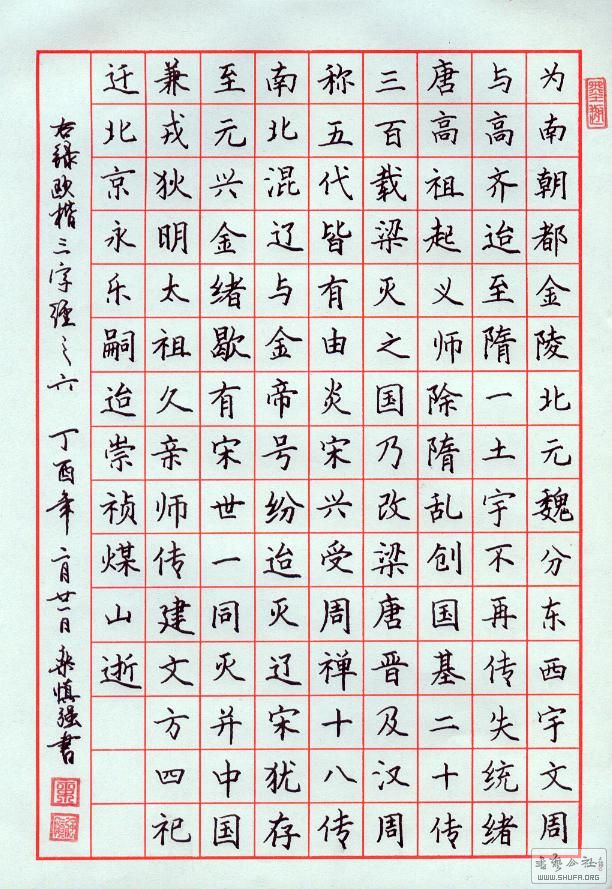 为南朝都金陵北元魏分东西宇文周
与高齐迨至隋一土宇不再传失统绪
唐高祖起义师除隋乱创国基二十传
三百载梁灭之国乃改梁唐晋及汉周
称五代皆有由炎宋兴受周禅十八传
南北混辽与金帝号纷迨灭辽宋犹存
至元兴金绪歇有宋世一同灭并中国
兼戎狄明太祖久亲师传建文方四祀
迁北京永乐嗣迨崇祯煤山逝
右录欧楷三字经之六 丁酉年二月廿一日 桑慎强书
书艺公社
WWW.SHUFA.ORG